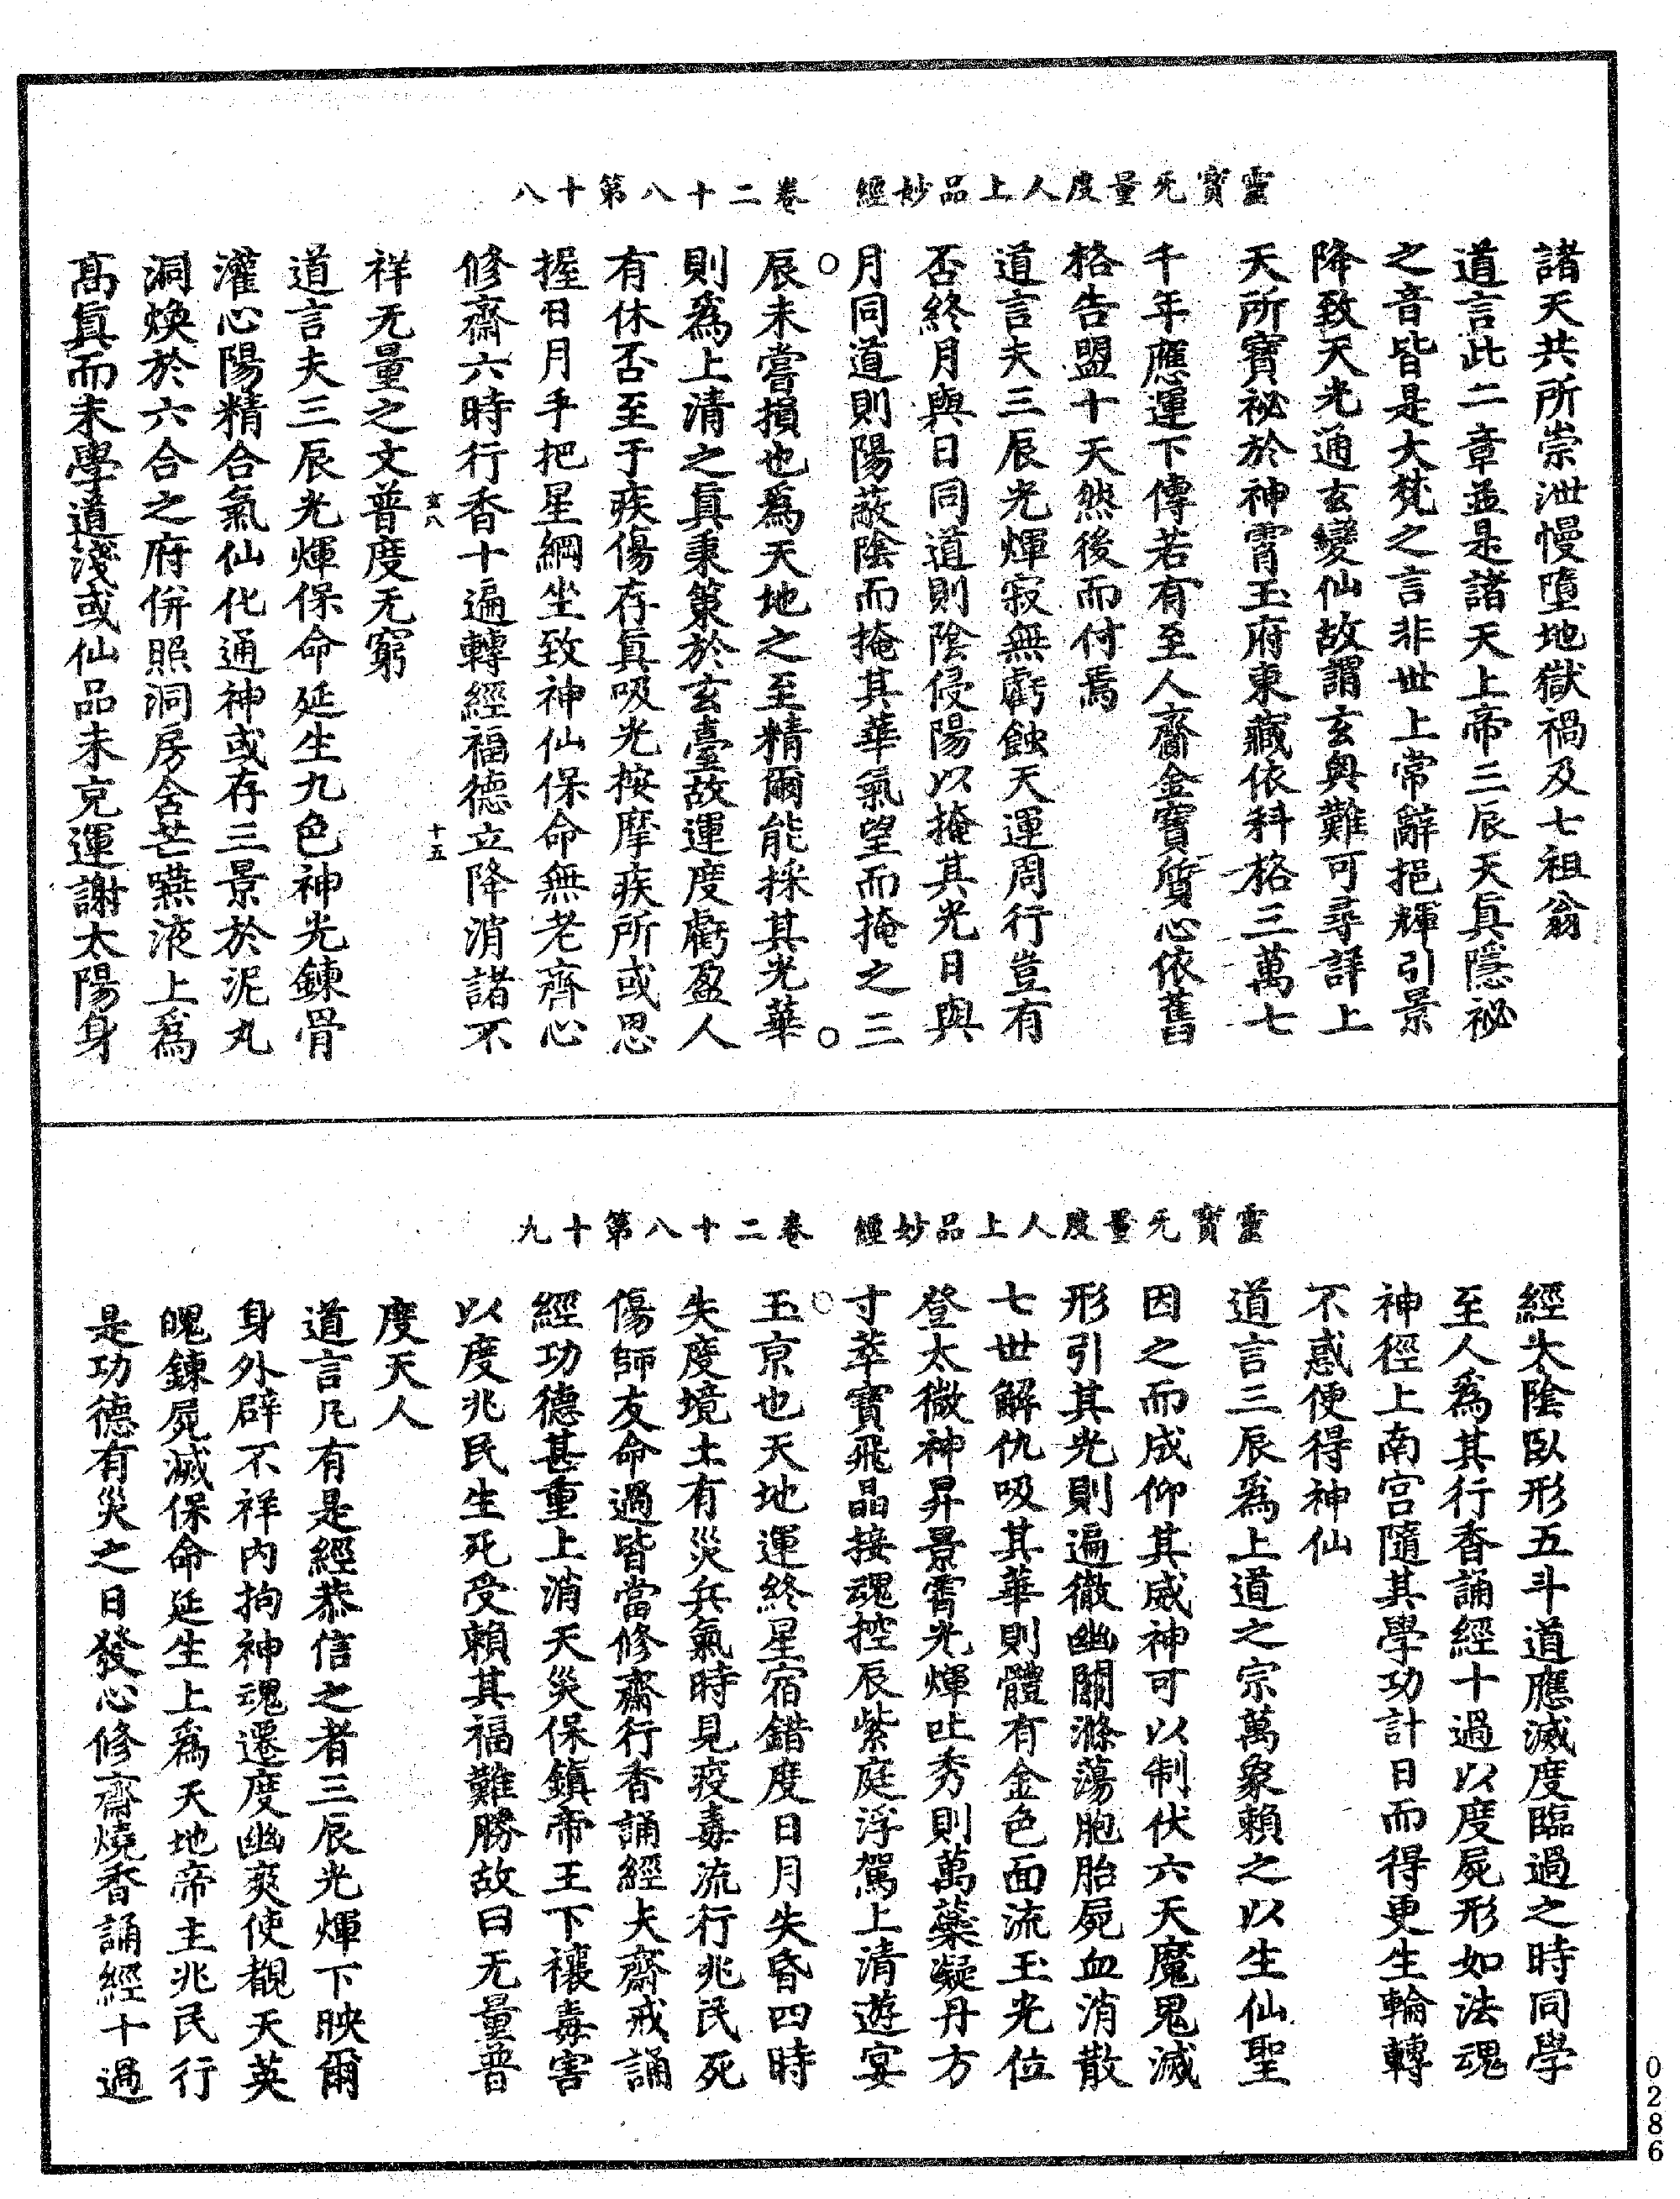 靈寶无量度人上品妙經　卷二十八第十八
諸天共所崇泄慢墮地獄禍及七祖翁
道言此二章並是諸天上帝三辰天眞隱祕
之音皆是大梵之言非世上常辭挹輝引景
降致天光通玄變仙故謂玄奥難可尋詳上
天所寶祕於神霄玉府東藏依科格三萬七
千年應運下傳若有至人齎金寶質心依舊
格告盟十天然後而付焉
道言夫三辰光煇寂無虧蝕天運周行豈有
否終月與日同道則陰侵陽以掩其光日與
月同道則陽蔽陰而掩其華氣望而掩之三
辰未嘗損也爲天地之至精爾能採其光華
則爲上清之眞秉策於玄臺故運度虧盈人
有休否至于疾傷存眞吸光按摩疾所或思
握日月手把星綱坐致神仙保命無老齊心
修齋六時行香十遍轉經福德立降消諸不
玄八　十五
祥无量之文普度无窮
道言夫三辰光煇保命延生九色神光鍊骨
灌心陽精合氣仙化通神或存三景於泥丸
洞煥於六合之府併照洞房含芒嚥液上爲
高眞而未學道淺或仙品未克運謝太陽身
靈寶无量度人上品妙經　卷二十八第十九
經太陰臥形五斗道應滅度臨過之時同學
至人爲其行香誦經十過以度屍形如法魂
神徑上南宮隨其學功計日而得更生輪轉
不惑便得神仙
道言三辰爲上道之宗萬象賴之以生仙聖
因之而成仰其威神可以制伏六天魔鬼滅
形引其光則遍徹幽關滌蕩胞胎屍血消散
七世解仇吸其華則體有金色面流玉光位
登太微神昇景霄光煇吐秀則萬藥凝丹方
寸萃寶飛晶接魂控辰紫庭浮駕上清遊宴
玉京也天地運終星宿錯度日月失昏四時
失度境土有災兵氣時見疫毒流行兆民死
傷師友命過皆當修齋行香誦經夫齋戒誦
經功德甚重上消天災保鎮帝王下禳毒害
以度兆民生死受賴其福難勝故曰无量普
度天人
道言凡有是經恭信之者三辰光煇下映爾
身外辟不祥內拘神魂遷度幽爽使覩天英
魄鍊屍滅保命延生上爲天地帝主兆民行
是功德有災之日發心修齋燒香誦經十過
0286